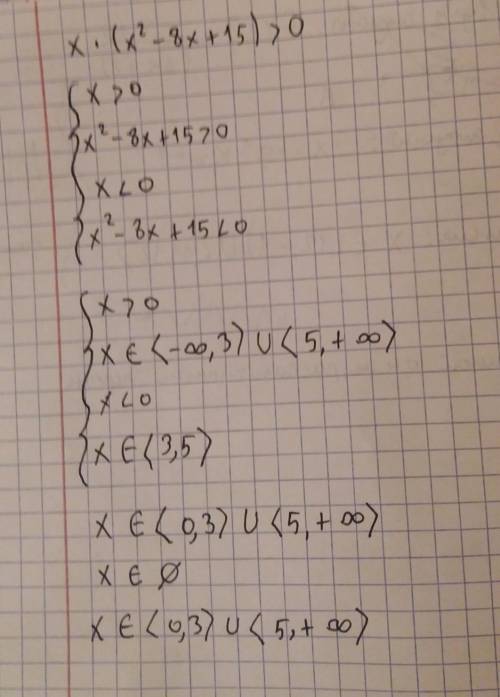 x · (x² - 8x + 15) > 0
x > 0
x² - 8x + 15 > 0
x < 0
x² - 8x + 15 < 0
x > 0
x ∈ ⟨-∞, 3⟩ ∪ ⟨5, +∞⟩
x < 0
x ∈ ⟨3, 5⟩
x ∈ ⟨0, 3⟩ ∪ ⟨5, +∞⟩
x ∈ ∅
x ∈ ⟨0, 3⟩ ∪ ⟨5, +∞⟩